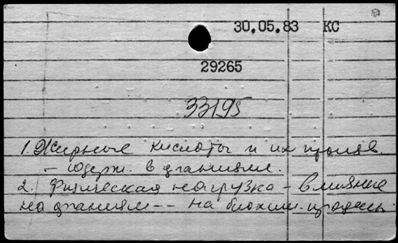 30.05.83 КС
29265
33195
1. Жирные кислоты и их произв
- содерж. в тканиями.
2. Физическая нагрузка - влияние
на тканиям -- на биохим. процессы.